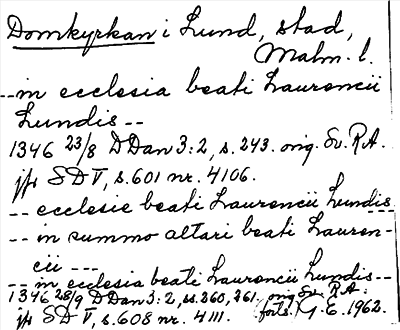 Domkyrkan i Lund, stad,
Malm. l.
--in ecclesia beati Laurencii
Lundis--
1346 23/8 DDan 3:2, s. 243. orig. Sv. R.A.
jfr SD V, s. 601 nr. 4106.
-- ecclesie beati Laurencii Lundis
-- in summo altari beati Lauren-
cii ---
-- in ecclesia beati Laurencii Lundis--
1346 28/9 DDan 3:2, ss. 260, 261. orig. Sv. R.A.
jfr SD V, s. 608 nr. 4111. forts. G. E. 1962.